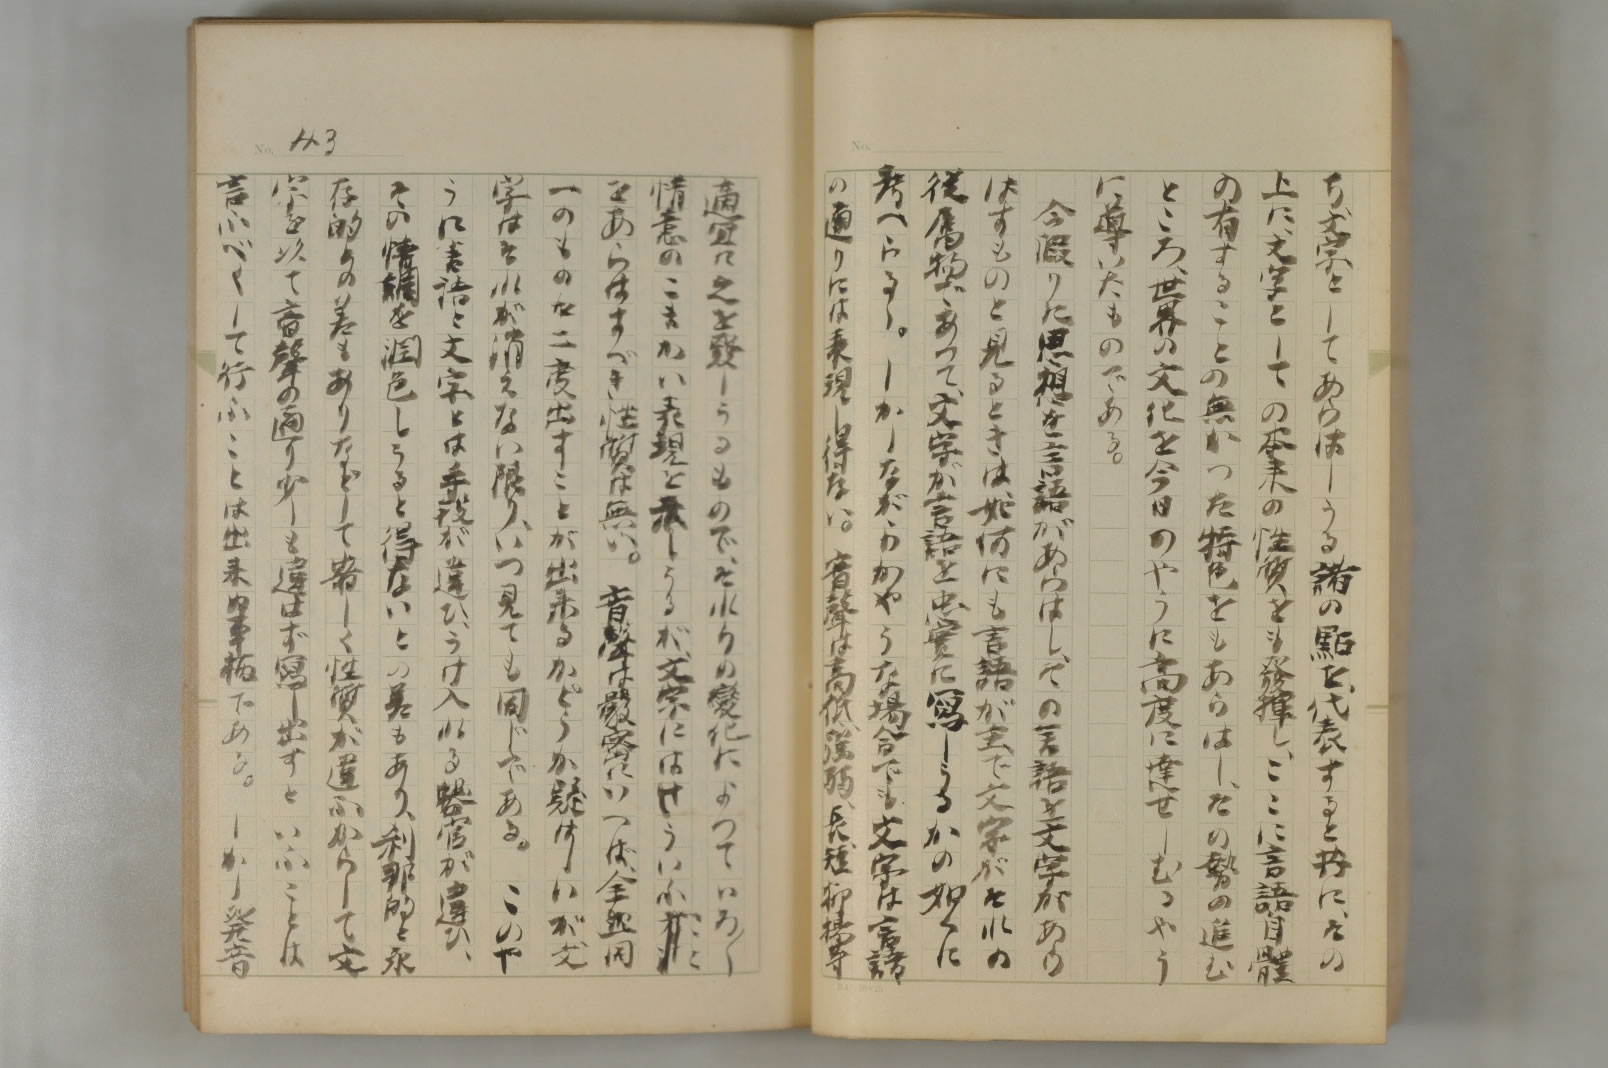 ち文字としてあらはしうる諸の點を代表すると共に、その
上に文字としての本来の性質をも発揮し、ここに言語自體
の有することの無かつた特色をもあらはし、その勢の進む
ところ、世界の文化を今日のやうに高度に達せしむるやう
に導いたものである。
今假りに思想を言語があらはし、その言語を文字があら
はすものと見るときは、如何にも言語が主で文字がそれの
從属物であつて、文字が言語を忠實に寫しうるかの如くに
考へらるる。しかしながらかやうな場合でも文字は言語
の通りには表現し得ない。音聲は高低、強弱、長短、抑揚等
No. 43
適宜に之を發しうるもので、それらの變化によつていろ〱
情意のこまかい表現を為しうるが、文字にはけういふこと
をあらはすべき性質は無い。音聲は嚴密にいへば、全然同
一のものを二度出すことが出来るかどうか疑はしいが文
字はそれが消えない限り、いつ見ても同じである。このや
うに言語と文字とは手段が違ひ、うけ入れる器官が違ひ、
その情調を潤色しうると得ないとの差もあり、刹那的と永
存的との差もありなどして著しく性質が違ふからして文
字を以て音聲の通り少しも違はず寫し出すといふことは
言ふべくして行ふことは出来ぬ事柄である。しかし発音